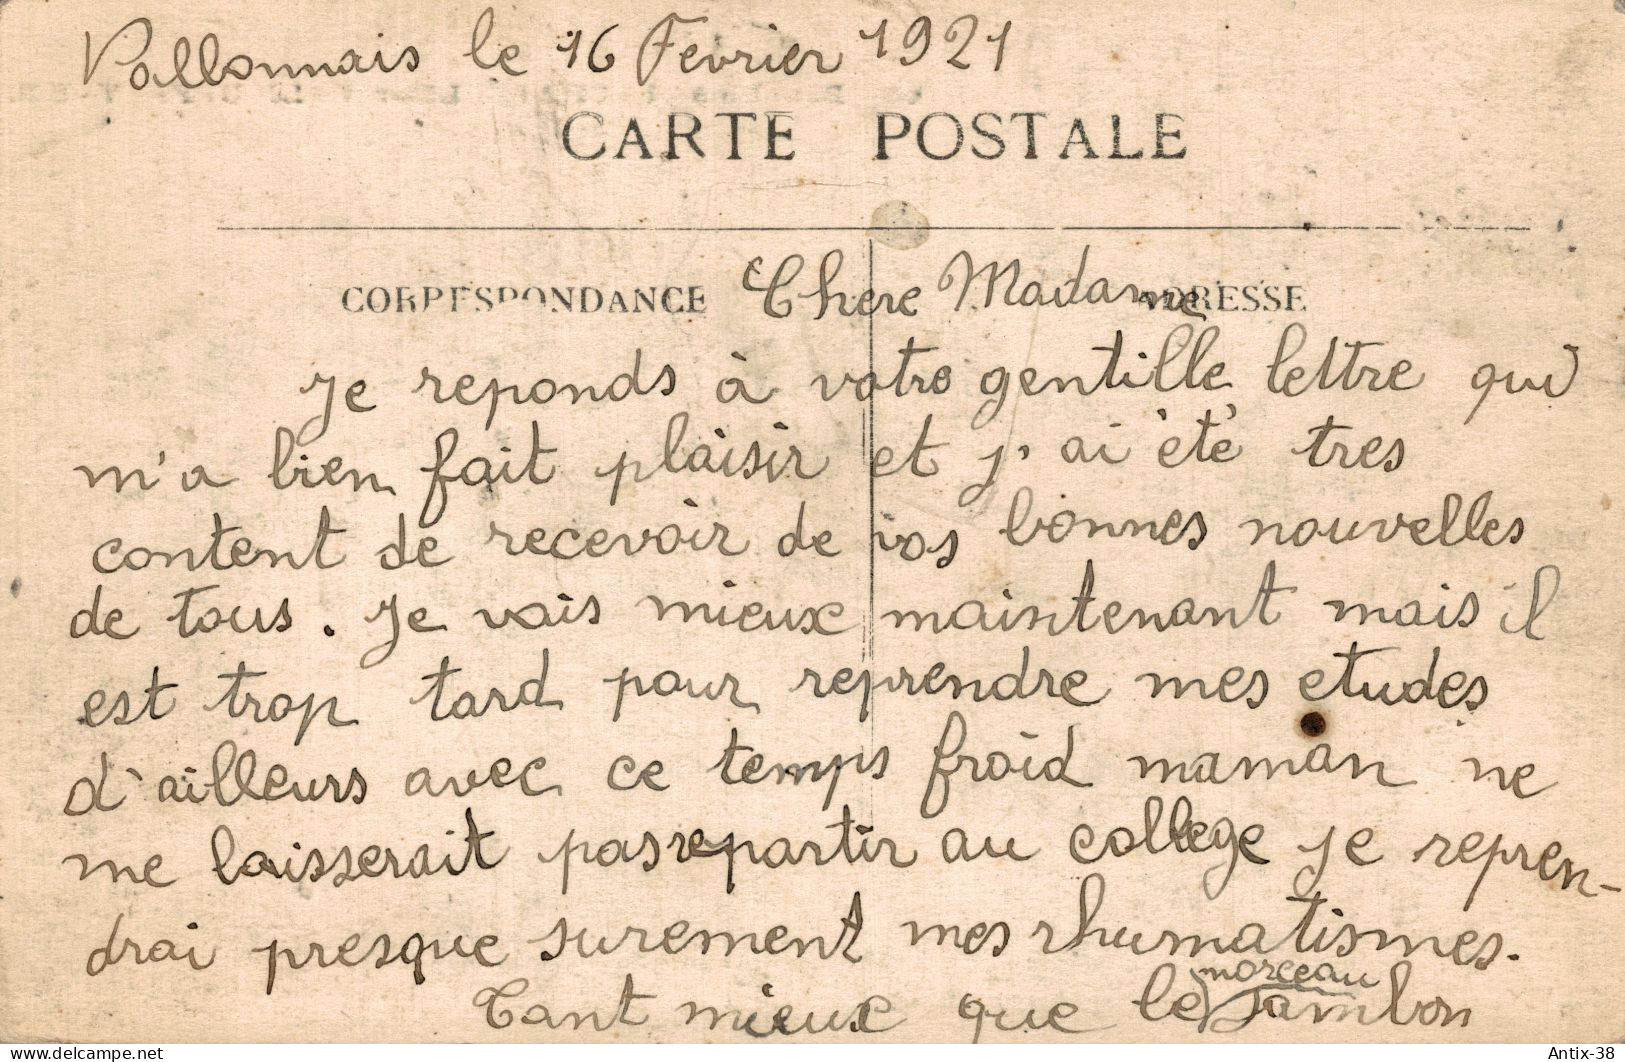 Vallonnais le 16 Fevrier 1921
CARTE POSTALE
CORRESPONDANCE Chere Madame ADRESSE
Je reponds à votre gentille lettre qui
m'a bien fait plaisir et j'ai été tres
content de recevoir de vos bonnes nouvelles
de tous. Je vais mieux maintenant mais il
est trop tard pour reprendre mes etudes
d'ailleurs avec ce temps froid maman ne
me laisserait pas repartir au college je repren-
drai presque surement mes rhumatismes.
morceau
Tant mieux que le Jambon
delcampe.net
Antix-38